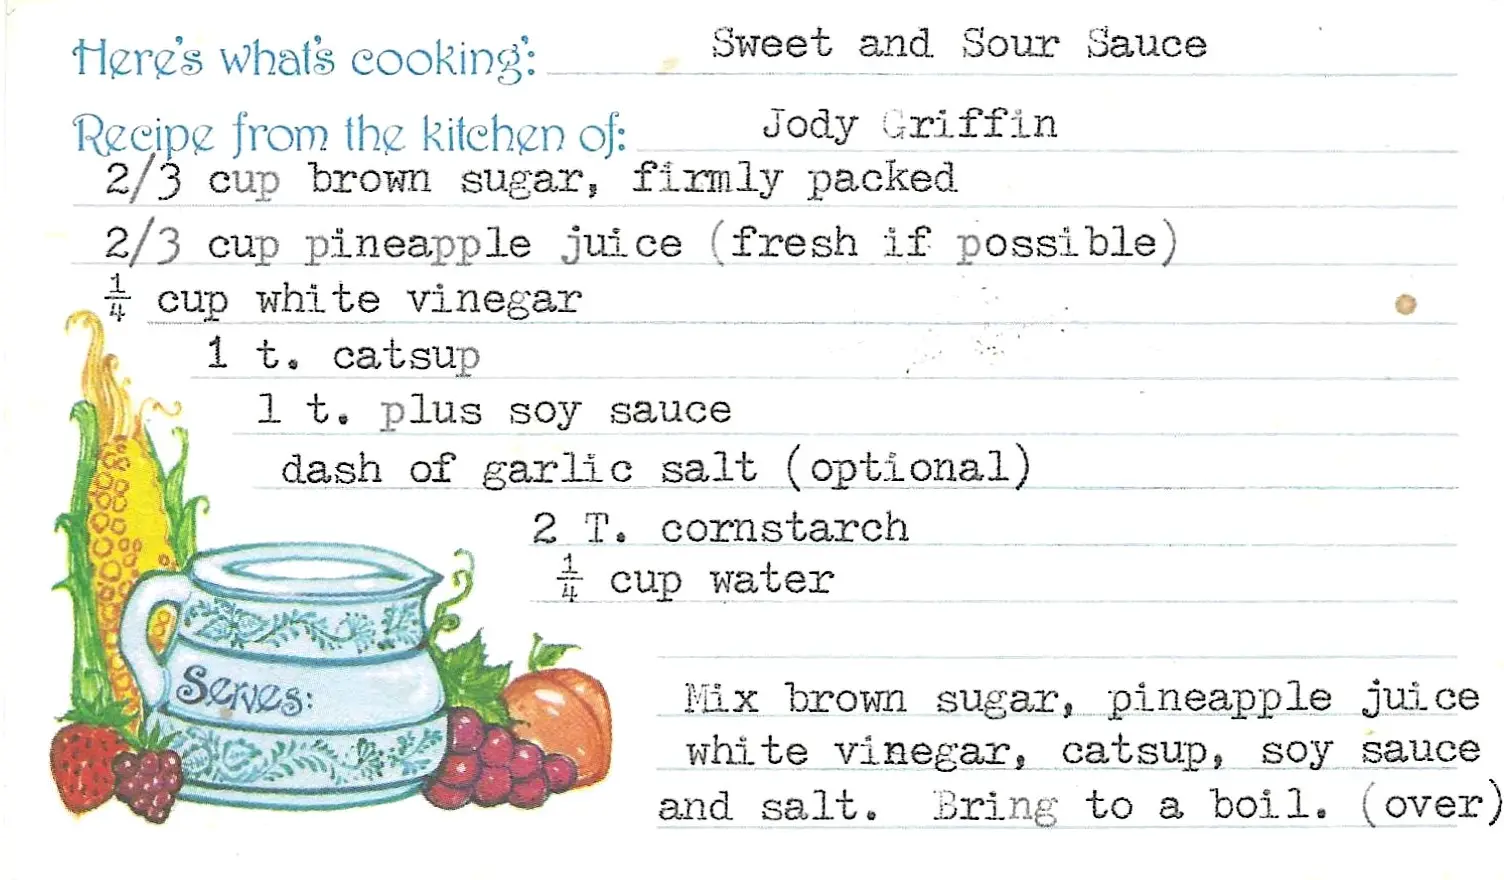 Here's what's cooking: Sweet and Sour Sauce
Recipe from the kitchen of: Jody Griffin
2/3 cup brown sugar, firmly packed
2/3 cup pineapple juice (fresh if possible)
¼ cup white vinegar
1 t. catsup
1 t. plus soy sauce
dash of garlic salt (optional)
2 T. cornstarch
¼ cup water
Serves:
Mix brown sugar, pineapple juice
white vinegar, catsup, soy sauce
and salt. Bring to a boil. (over)